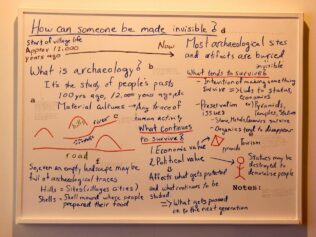 How can someone be made invisible?
a
Start of village life
Approx 12,000
years ago
Now
What is archaeology?
b
It's the study of people's past
100 yrs ago, 12,000 years ago, etc
Material Culture = Any trace of
human activity
a
hills
river
c
stones
road
So, even an empty landscape may be
full of archaeological traces
Hills = Sites (villages cities)
Shells = Shell mound where people
prepared their food
Most archaeological sites
and artifacts are buried
invisible
What tends to survive?
- Intention of making something
survive = Status to statues,
economics
- Preservation
issues
Pyramids,
temples, statues
- Stone, Metal, Ceramics survive
- Organics tend to disappear
Tourism
promote
What continues
to survive?
1. Economic value
2. Political value
Statues may be
destroyed to
demoralise people
Affects what gets protected
and what continues to be
studied
What gets passed
on to the next generation
Notes: